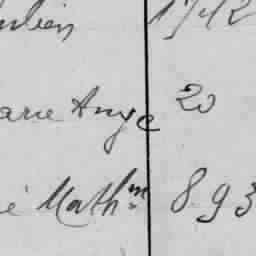 ulien 1742
arie Ange 20
é Mathin 893